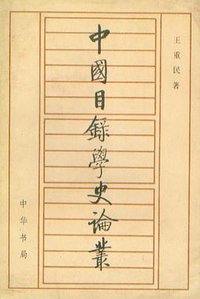 王重民著
中國目錄學史論叢
中华书局